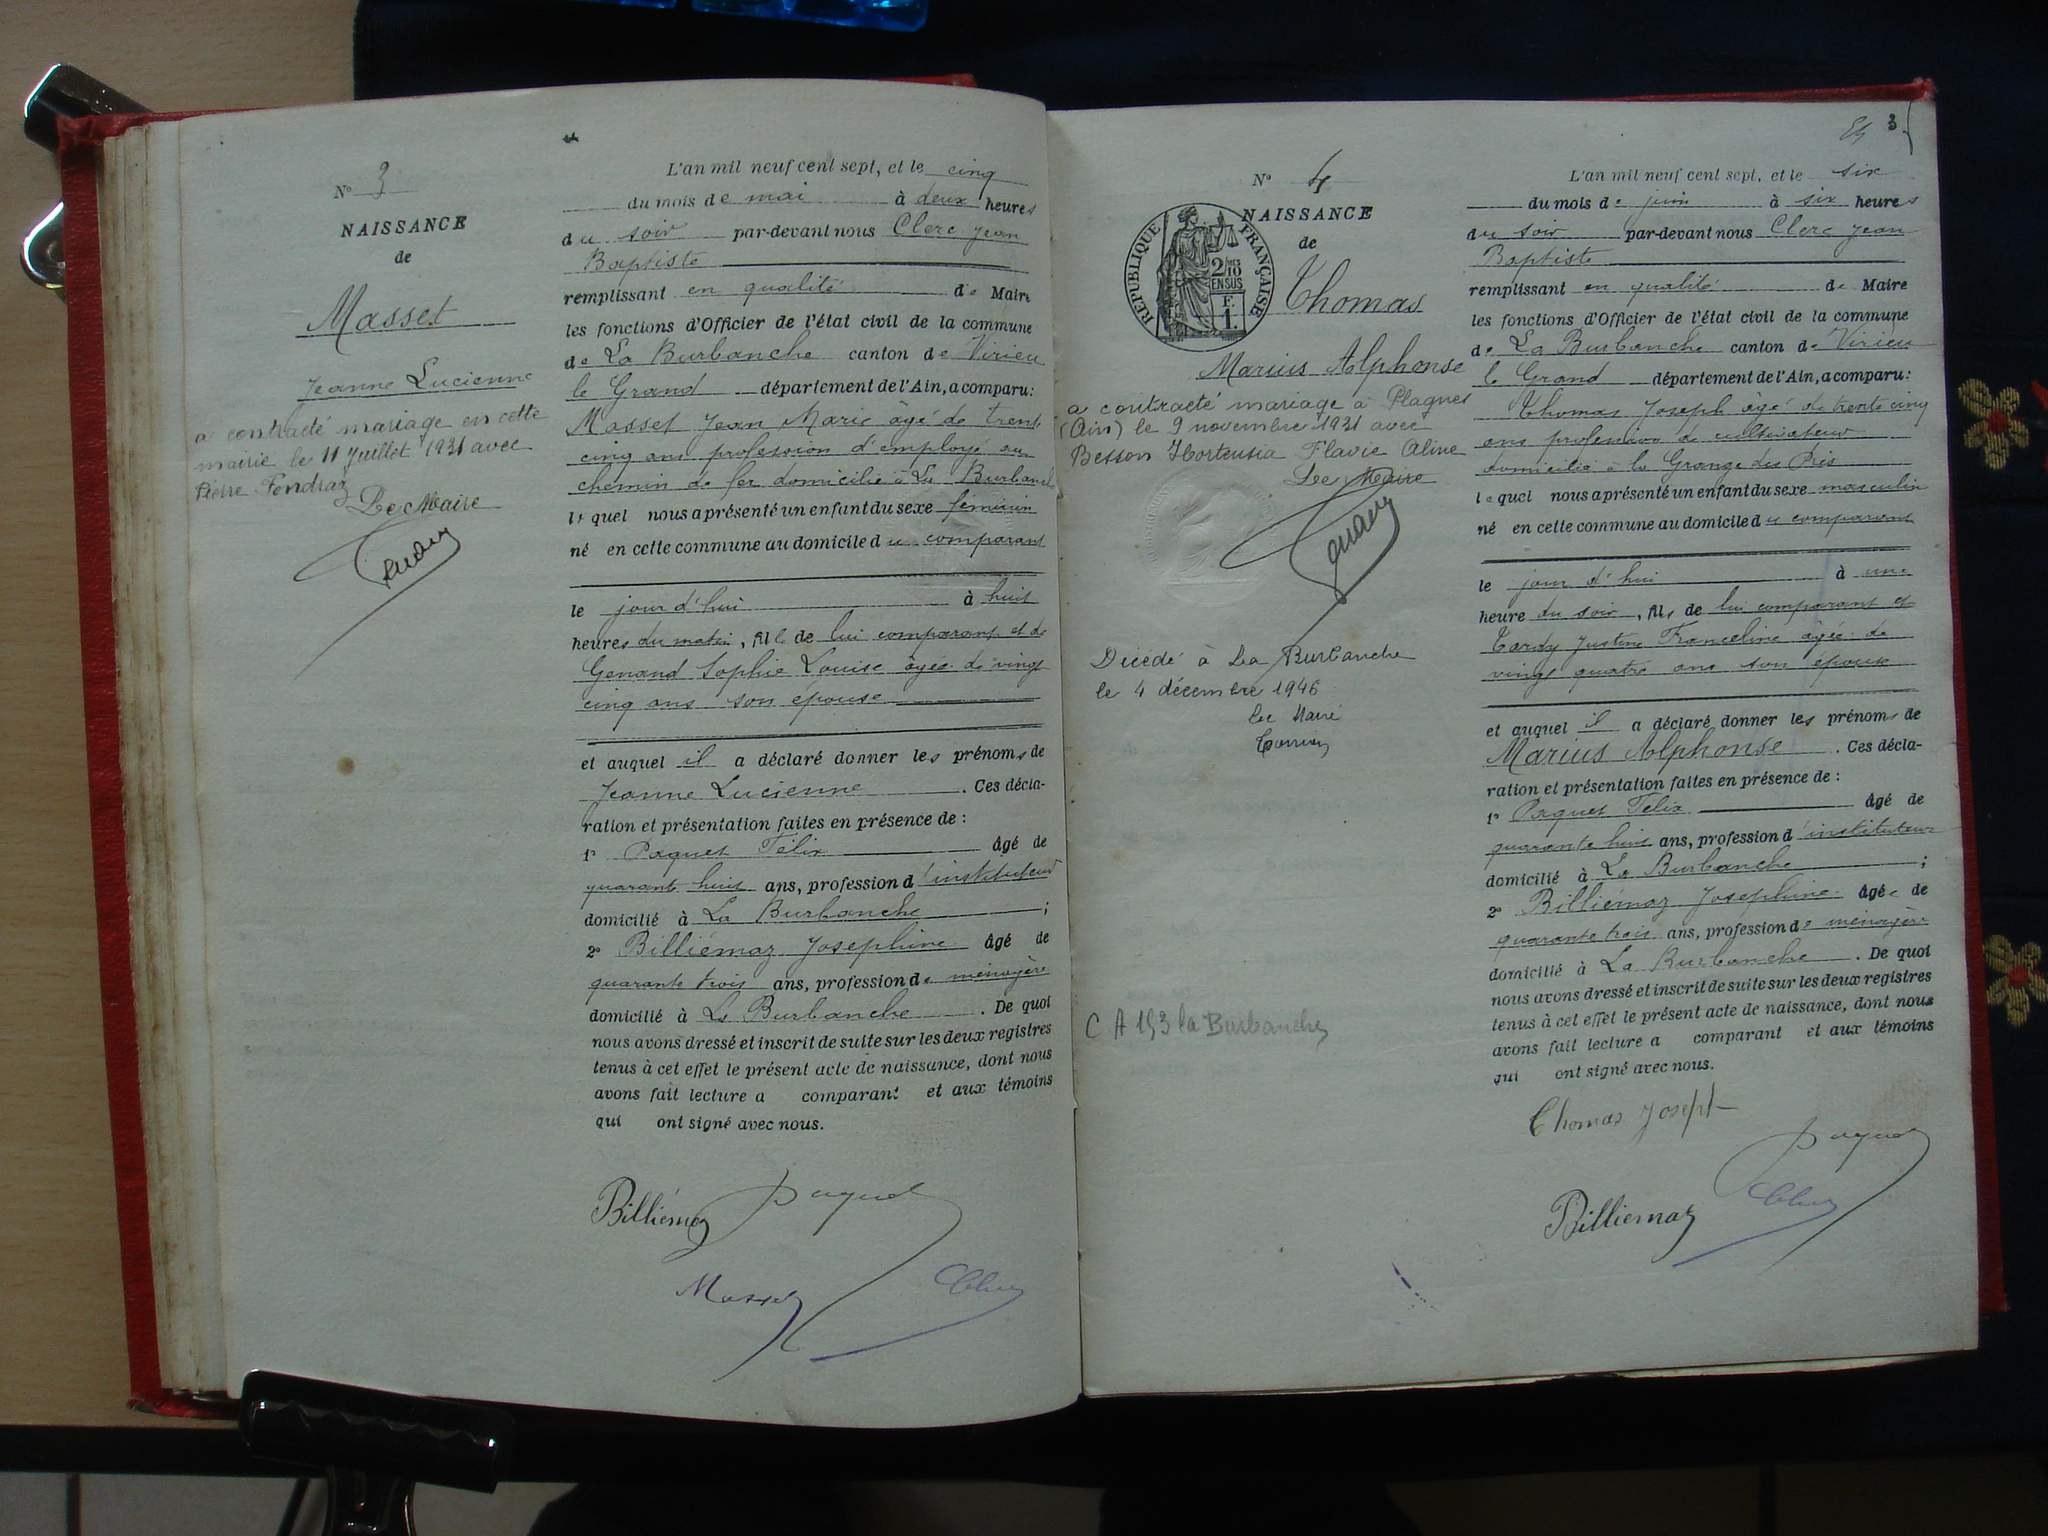 N° 3
NAISSANCE
de
Masset
Jeanne Lucienne
a contracté mariage en cette
mairie le 11 Juillet 1931 avec
Pierre Fendraz
Le Maire
L'an mil neuf cent sept, et le cinq
du mois de mai à deux heures
du soir par-devant nous Clerc Jean
Baptiste
remplissant en qualité de Maire
les fonctions d'Officier de l'état civil de la commune
de La Burbanche canton de Virieu
le Grand département de l'Ain, a comparu:
Masset Jean Marie âgé de trente
cinq ans profession d'employé au
chemin de fer domicilié à La Burbanche
lequel nous a présenté un enfant du sexe féminin
né en cette commune au domicile du comparant
le jour d'hui à huit
heures du matin, fille de lui comparant et de
Genand Sophie Louise âgée de vingt
cinq ans son épouse
et auquel il a déclaré donner les prénoms de
Jeanne Lucienne . Ces décla-
ration et présentation faites en présence de :
1° Paquet Félix âgé de
quarante huit ans, profession d'instituteur
domicilié à La Burbanche ;
2° Billiémaz Josephine âgé de
quarante trois ans, profession de ménagère
domicilié à La Burbanche . De quoi
nous avons dressé et inscrit de suite sur les deux registres
tenus à cet effet le présent acte de naissance, dont nous
avons fait lecture a comparant et aux témoins
qui ont signé avec nous.
Billiémaz Paquet
Masset
3
N° 4
NAISSANCE
de
RÉPUBLIQUE FRANÇAISE
2/10
EN SUS
F.
1.
Thomas
Marius Alphonse
a contracté mariage à Plagnes
(Ain) le 9 novembre 1931 avec
Besson Hortensia Flavie Aline
Le Maire
Décédé à La Burbanche
le 4 décembre 1946
Le Maire
C A 153 la Burbanche
L'an mil neuf cent sept, et le six
du mois de juin à six heures
du soir par-devant nous Clerc Jean
Baptiste
remplissant en qualité de Maire
les fonctions d'Officier de l'état civil de la commune
de La Burbanche canton de Virieu
le Grand département de l'Ain, a comparu:
Thomas Joseph âgé de trente cinq
ans profession de cultivateur
domicilié à la Grange des Prés
lequel nous a présenté un enfant du sexe masculin
né en cette commune au domicile du comparant
le jour d'hui à une
heure du soir, fils de lui comparant et
Tardy Justine Franceline âgée de
vingt quatre ans son épouse
et auquel il a déclaré donner les prénoms de
Marius Alphonse . Ces décla-
ration et présentation faites en présence de :
1° Paquet Félix âgé de
quarante huit ans, profession d'instituteur
domicilié à La Burbanche ;
2° Billiémaz Josephine âgée de
quarante trois ans, profession de ménagère
domicilié à La Burbanche . De quoi
nous avons dressé et inscrit de suite sur les deux registres
tenus à cet effet le présent acte de naissance, dont nous
avons fait lecture a comparant et aux témoins
qui ont signé avec nous.
Thomas Joseph
Paquet
Billiemaz